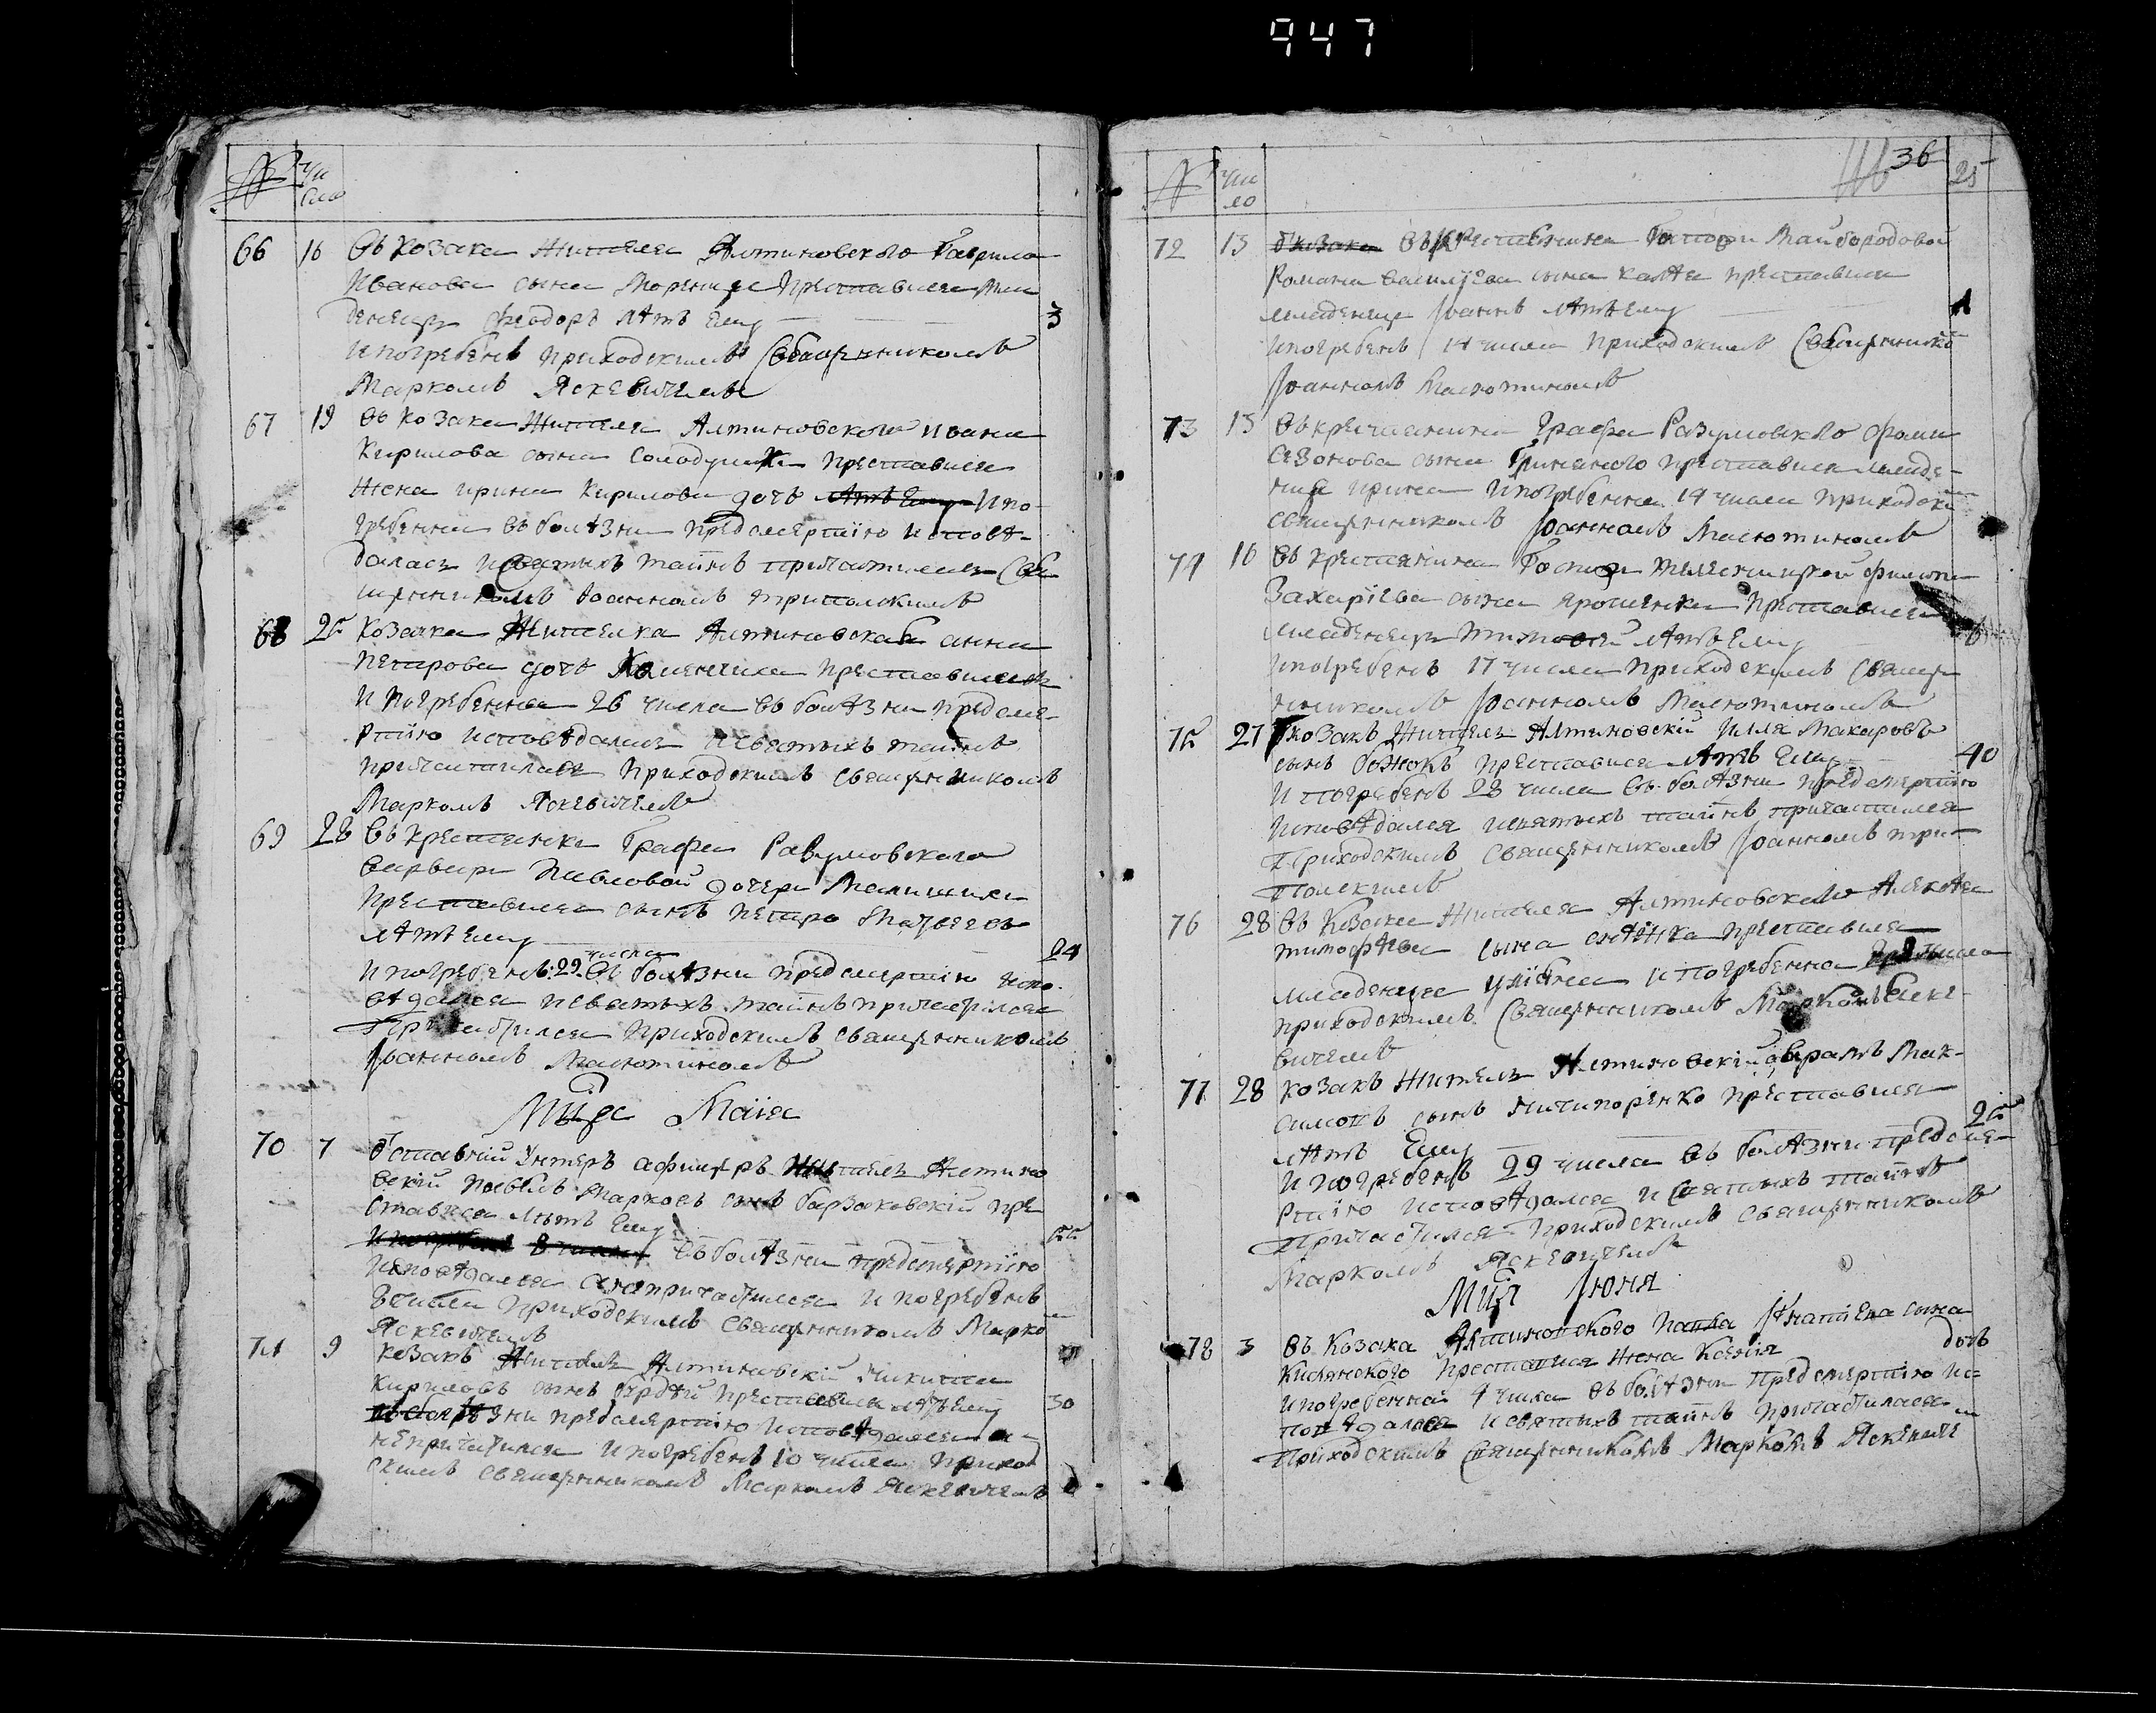 947
№ Чи
сло
66 16 въ козака жителя Алтиновского Гаврила
Иванова сына Моренце преставися мла
денецъ Феодоръ лѣтъ ему 3
и погребенъ приходскимъ священникомъ
Маркомъ Яскевичемъ
67 19 въ козака жителя Алтиновского ивана
Кирилова сына Солодушка преставися
жена ирина Кирилова дочъ лѣтъ ему и по-
гребенна въ болѣзни предсмертїю исповѣ-
далась и святыхъ таинъ причатилась свя
щенникомъ Іоанномъ триполскимъ
68 25 козачка жителка Алтиновская анна
петрова дочъ преставилась
и погребенна 26 числа въ болѣзни предсме-
ртїю исповѣдалась и святыхъ таинъ
причатилася приходскимъ священникомъ
Маркомъ Яскевичемъ
69 28 въ крестянки Графа Разумовского
варвари Павловой дочери Малишихи
преставися сынъ петро Матвеевъ
лѣтъ ему 24
и погребенъ 29 числа въ болѣзни предсмертїю испо-
вѣдался и святыхъ таинъ
причастился приходскимъ священникомъ
Іоанномъ Масютиномъ
Мц҃а Маїя
70 7 Отставнїй унтеръ афицеръ житель Алтино
вскїй павелъ Марковъ сынъ барзаковскїй пре
ставися лѣтъ ему 55
и погребенъ 8 числа въ болѣзни предсмертїю
исповѣдался а непричастился и погребенъ
8 числа приходскимъ священникомъ Марко
Яскевичемъ
71 9 козакъ житель Алтиновскїй никита
Кириловъ сынъ преставися лѣтъ ему 30
въ болѣзни предсмертїю исповѣдался а
непричастился и погребенъ 10 числа приход
скимъ священникомъ Маркомъ Яскевичемъ
36
25
№ Чи
сло
72 13 въ козака въ крестянина Майбородовой
Романа василїева сына преставися
младенецъ Іоаннъ лѣтъ ему 1
и погребенъ 14 числа приходскимъ священнико
Іоанномъ Масютиномъ
73 13 въ крестянина Графа Разумовского Фоми
Сазонова сына преставися младе-
ница ирина и погребенна 14 числа приходски
священникомъ Іоанномъ Масютиномъ
74 16 въ крестянина филипа
Захарїева сына Ярошенка преставися
младенецъ тимофей лѣтъ ему 6
и погребенъ 17 числа приходскимъ священ
никомъ Іоанномъ Масютиномъ
75 27 козакъ житель Алтиновскїй илля Макаровъ
сынъ божокъ преставися лѣтъ ему 40
и погребенъ 28 числа въ болѣзни предсмертїю
исповѣдался и святыхъ таинъ причастился
приходскимъ священникомъ Іоанномъ три-
полскимъ
76 28 въ козака жителя Алтиновского Алексѣя
тимофѣева сына преставися
младеница улїяна и погребенна числа
приходскимъ священникомъ Маркомъ Яске-
вичемъ
77 28 козакъ житель Алтиновскїй аврамъ Мак-
симовъ сынъ ничипоренко преставися
лѣтъ ему 25
и погребенъ 29 числа въ болѣзни предсме-
ртїю исповѣдался и святыхъ таинъ
причастился приходскимъ священникомъ
Маркомъ Яскевичемъ
Мц҃ъ Іюня
78 3 въ козака Алтиновского павла Игнатїева сына
преставися жена Ксенїя дочъ
и погребенна 4 числа въ болѣзни предсмертїю ис-
повѣдалася и святыхъ таинъ причастилася
приходскимъ священникомъ Маркомъ Яскевиче